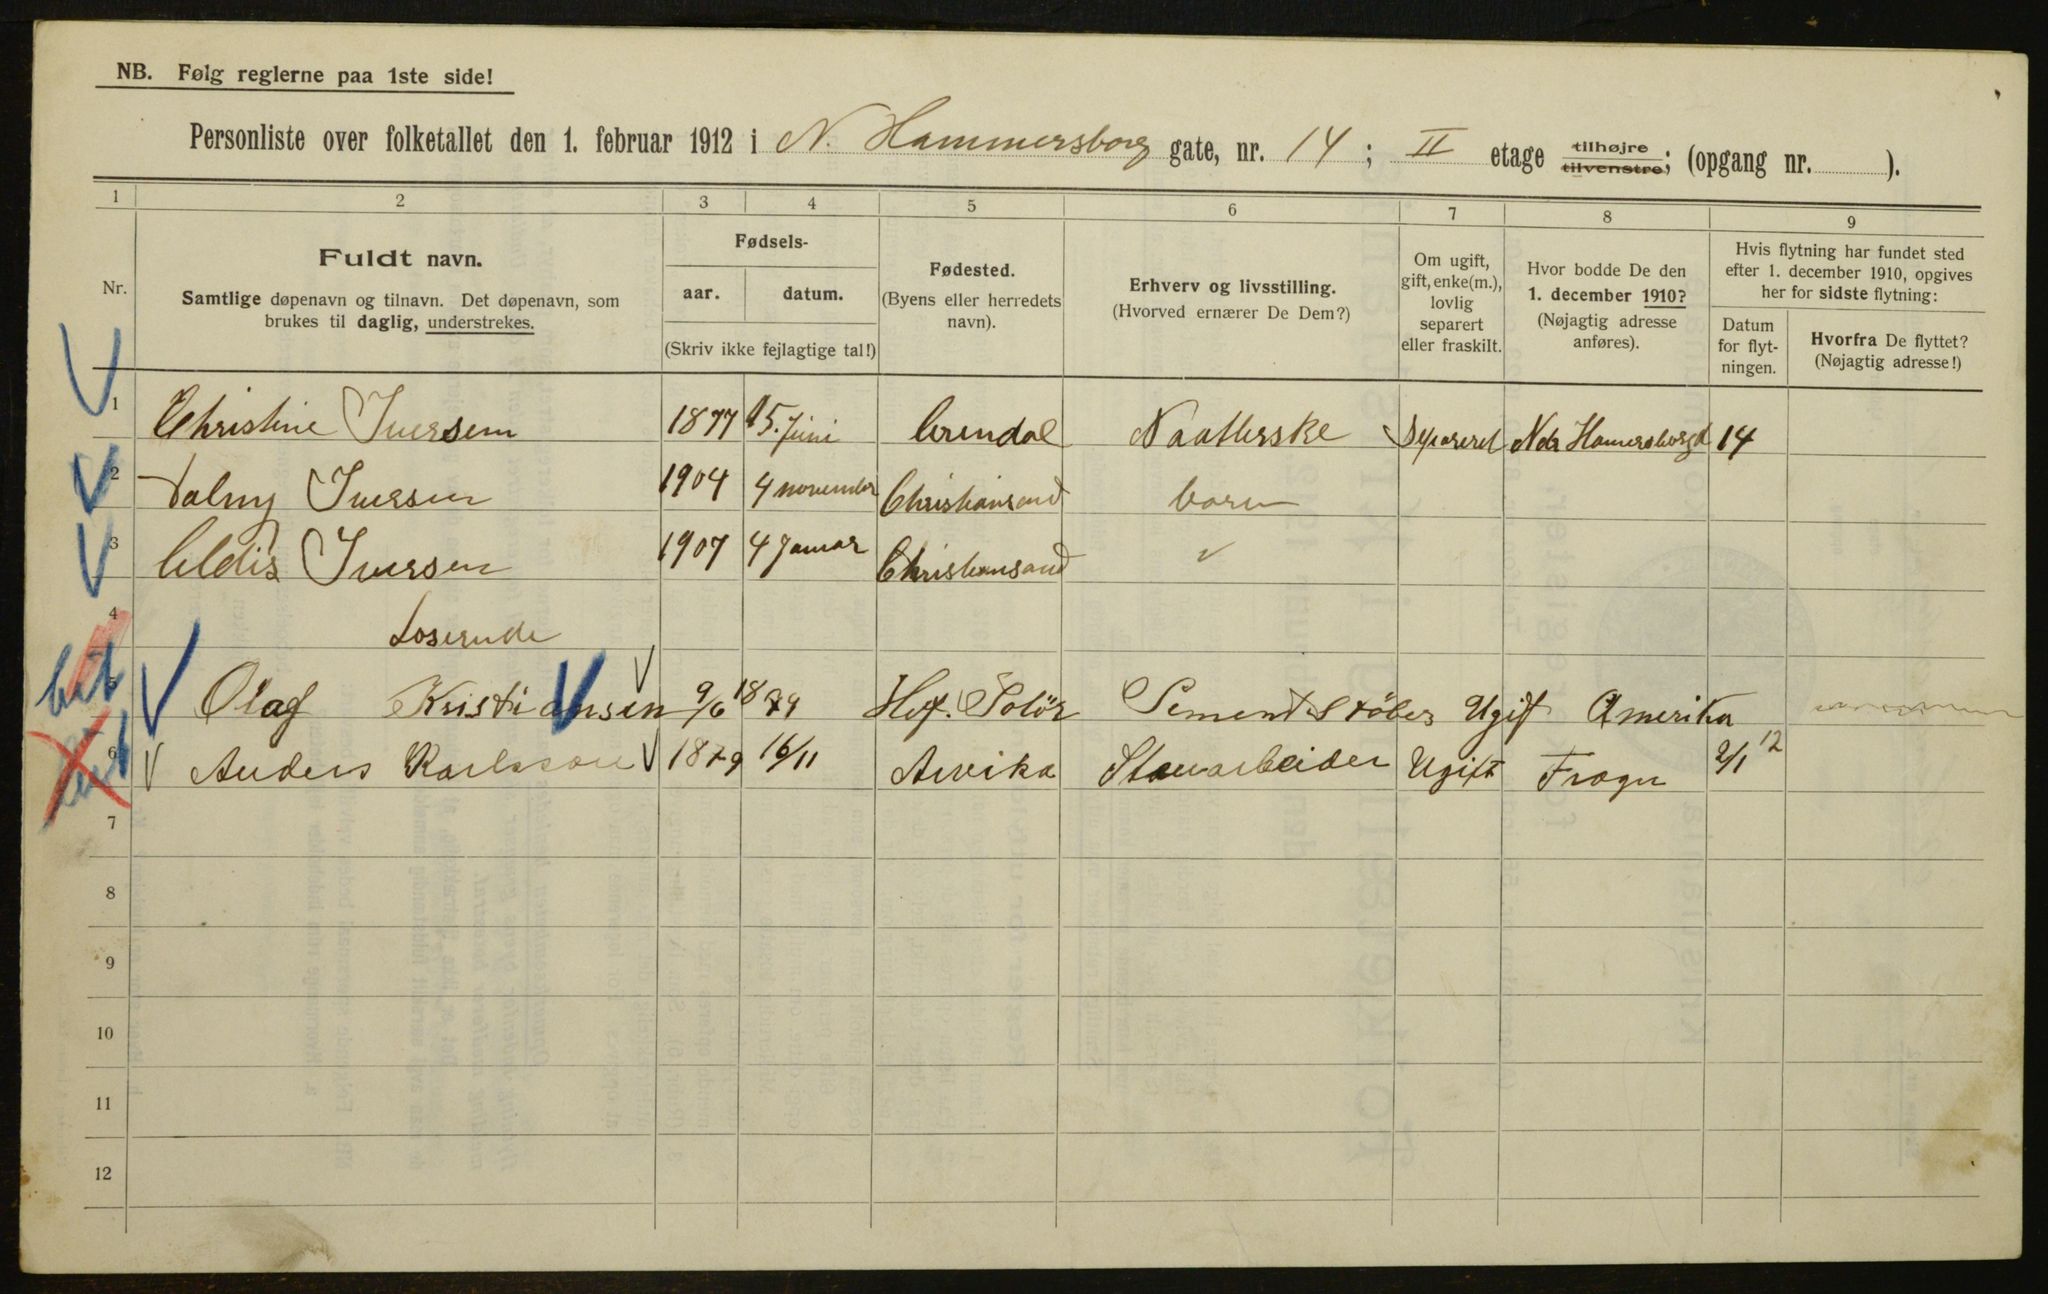 NB. Følg reglerne paa 1ste side!
Personliste over folketallet den 1. februar 1912 i N. Hammersborg gate, nr. 14; II etage tilhøjre tilvenstre; (opgang nr. ).
1 2 3 4 5 6 7 8 9
Nr.
Fuldt navn.
Samtlige døpenavn og tilnavn. Det døpenavn, som
brukes til daglig, understrekes.
Fødsels-
aar. datum.
(Skriv ikke fejlagtige tal!)
Fødested.
(Byens eller herredets
navn).
Erhverv og livsstilling.
(Hvorved ernærer De Dem?)
Om ugift,
gift, enke(m.),
lovlig
separert
eller fraskilt.
Hvor bodde De den
1. december 1910?
(Nøjagtig adresse
anføres).
Hvis flytning har fundet sted
efter 1. december 1910, opgives
her for sidste flytning:
Datum
for flyt-
ningen.
Hvorfra De flyttet?
(Nøjagtig adresse!)
1 Christine Iversen 1877 15. Juni Arendal Naatlerske Separeret Ndr Hamersborgd 14
2 Valny Iversen 1904 4 november Christiansand barn
3 Aldis Iversen 1907 4 Januar Christiansand
4 Loserende
5 Olaf Kristiansen 9/6 1879 Hof. Solör Sement Støber Ugift Amerika
6 Anders Karlsson 1879 16/11 Arvika Stenarbeider Ugift Frogn 2/1 12
7
8
9
10
11
12